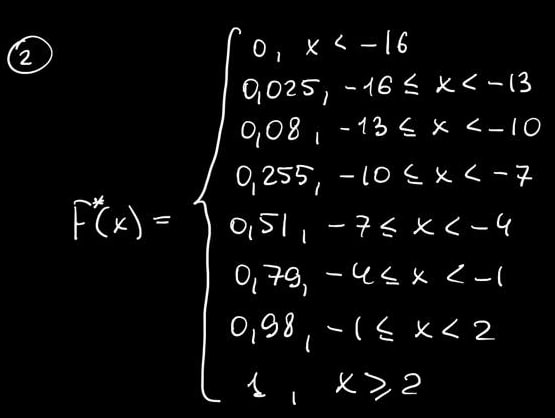 2
0, x < -16
0,025, -16 ≤ x < -13
0,08, -13 ≤ x < -10
0,255, -10 ≤ x < -7
F*(x) = 0,51, -7 ≤ x < -4
0,79, -4 ≤ x < -1
0,98, -1 ≤ x < 2
1, x ⩾ 2